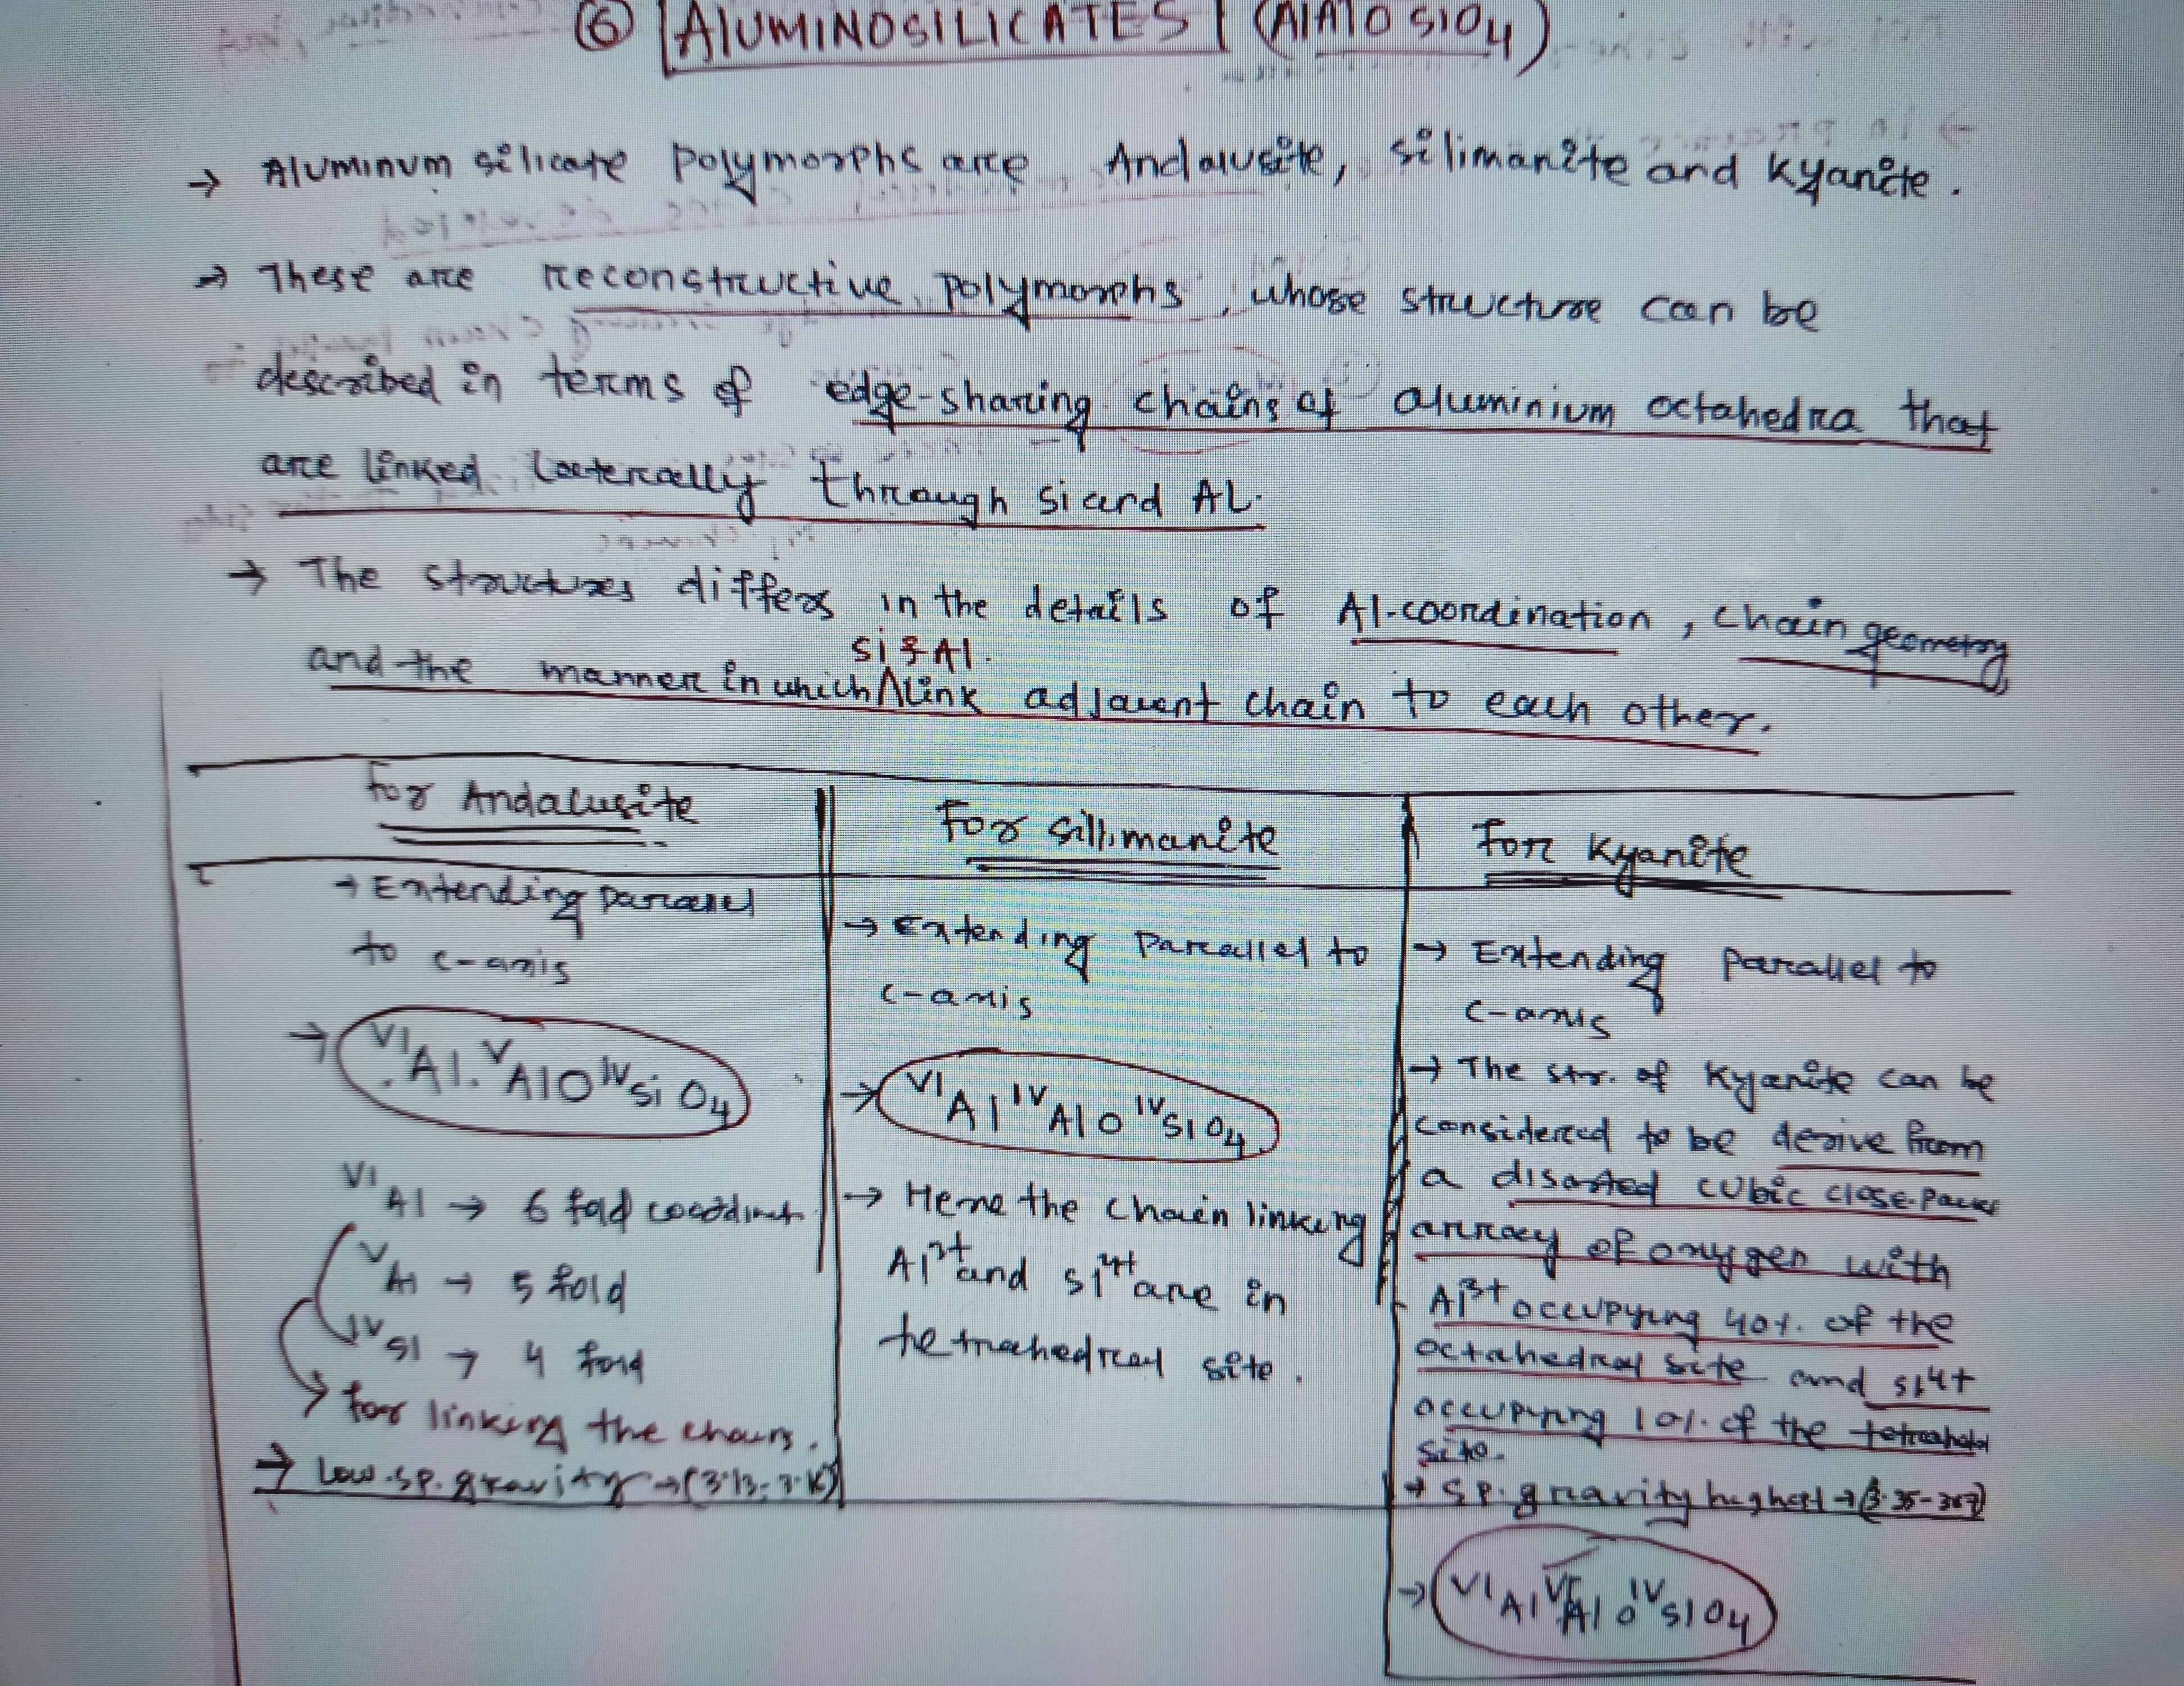 ⑥ ALUMINOSILICATES (AlAlO SiO4)
→ Aluminum silicate polymorphs are Andalusite, silimanite and Kyanite.
→ These are reconstructive polymorphs, whose structure can be
described in terms of edge-sharing chains of aluminium octahedra that
are linked laterally through si and AL.
→ The structures differs in the details of Al-coordination, chain geometry
si & Al.
and the manner in which ∧ link adjacent chain to each other.
for Andalusite
→ Extending parallel
to c-axis
→ VIAl. VAlO IVSi O4
VI Al → 6 fold coordinat
V Al → 5 fold
IV Si → 4 fold
→ for linking the chains.
→ Low sp. gravity → (3.13-3.16)
For sillimanite
→ Extending parallel to
c-axis
→ VIAl IVAlO IVSiO4
→ Here the chain linking
Al3+ and si4+ are in
tetrahedral site.
for Kyanite
→ Extending parallel to
c-axis
→ The str. of Kyanite can be
considered to be derive from
a disorted cubic close-packed
array of oxygen with
Al3+ occupying 40%. of the
octahedral site and si4+
occupying 10%. of the tetrahedral
site.
→ sp. gravity highest →
→ VIAl VIAlO IVSiO4